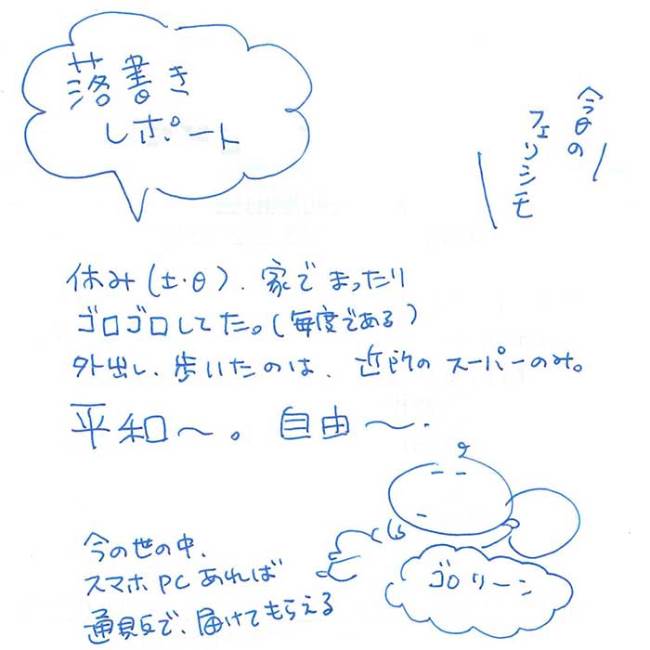 落書き
レポート
今日の
フェリシモ
休み(土・日)、家でまったり
ゴロゴロしてた。(毎度である)
外出し、歩いたのは、近所のスーパーのみ。
平和〜。自由〜.
今の世の中、
スマホPCあれば
通販で、届けてもらえる
ゴロリーン